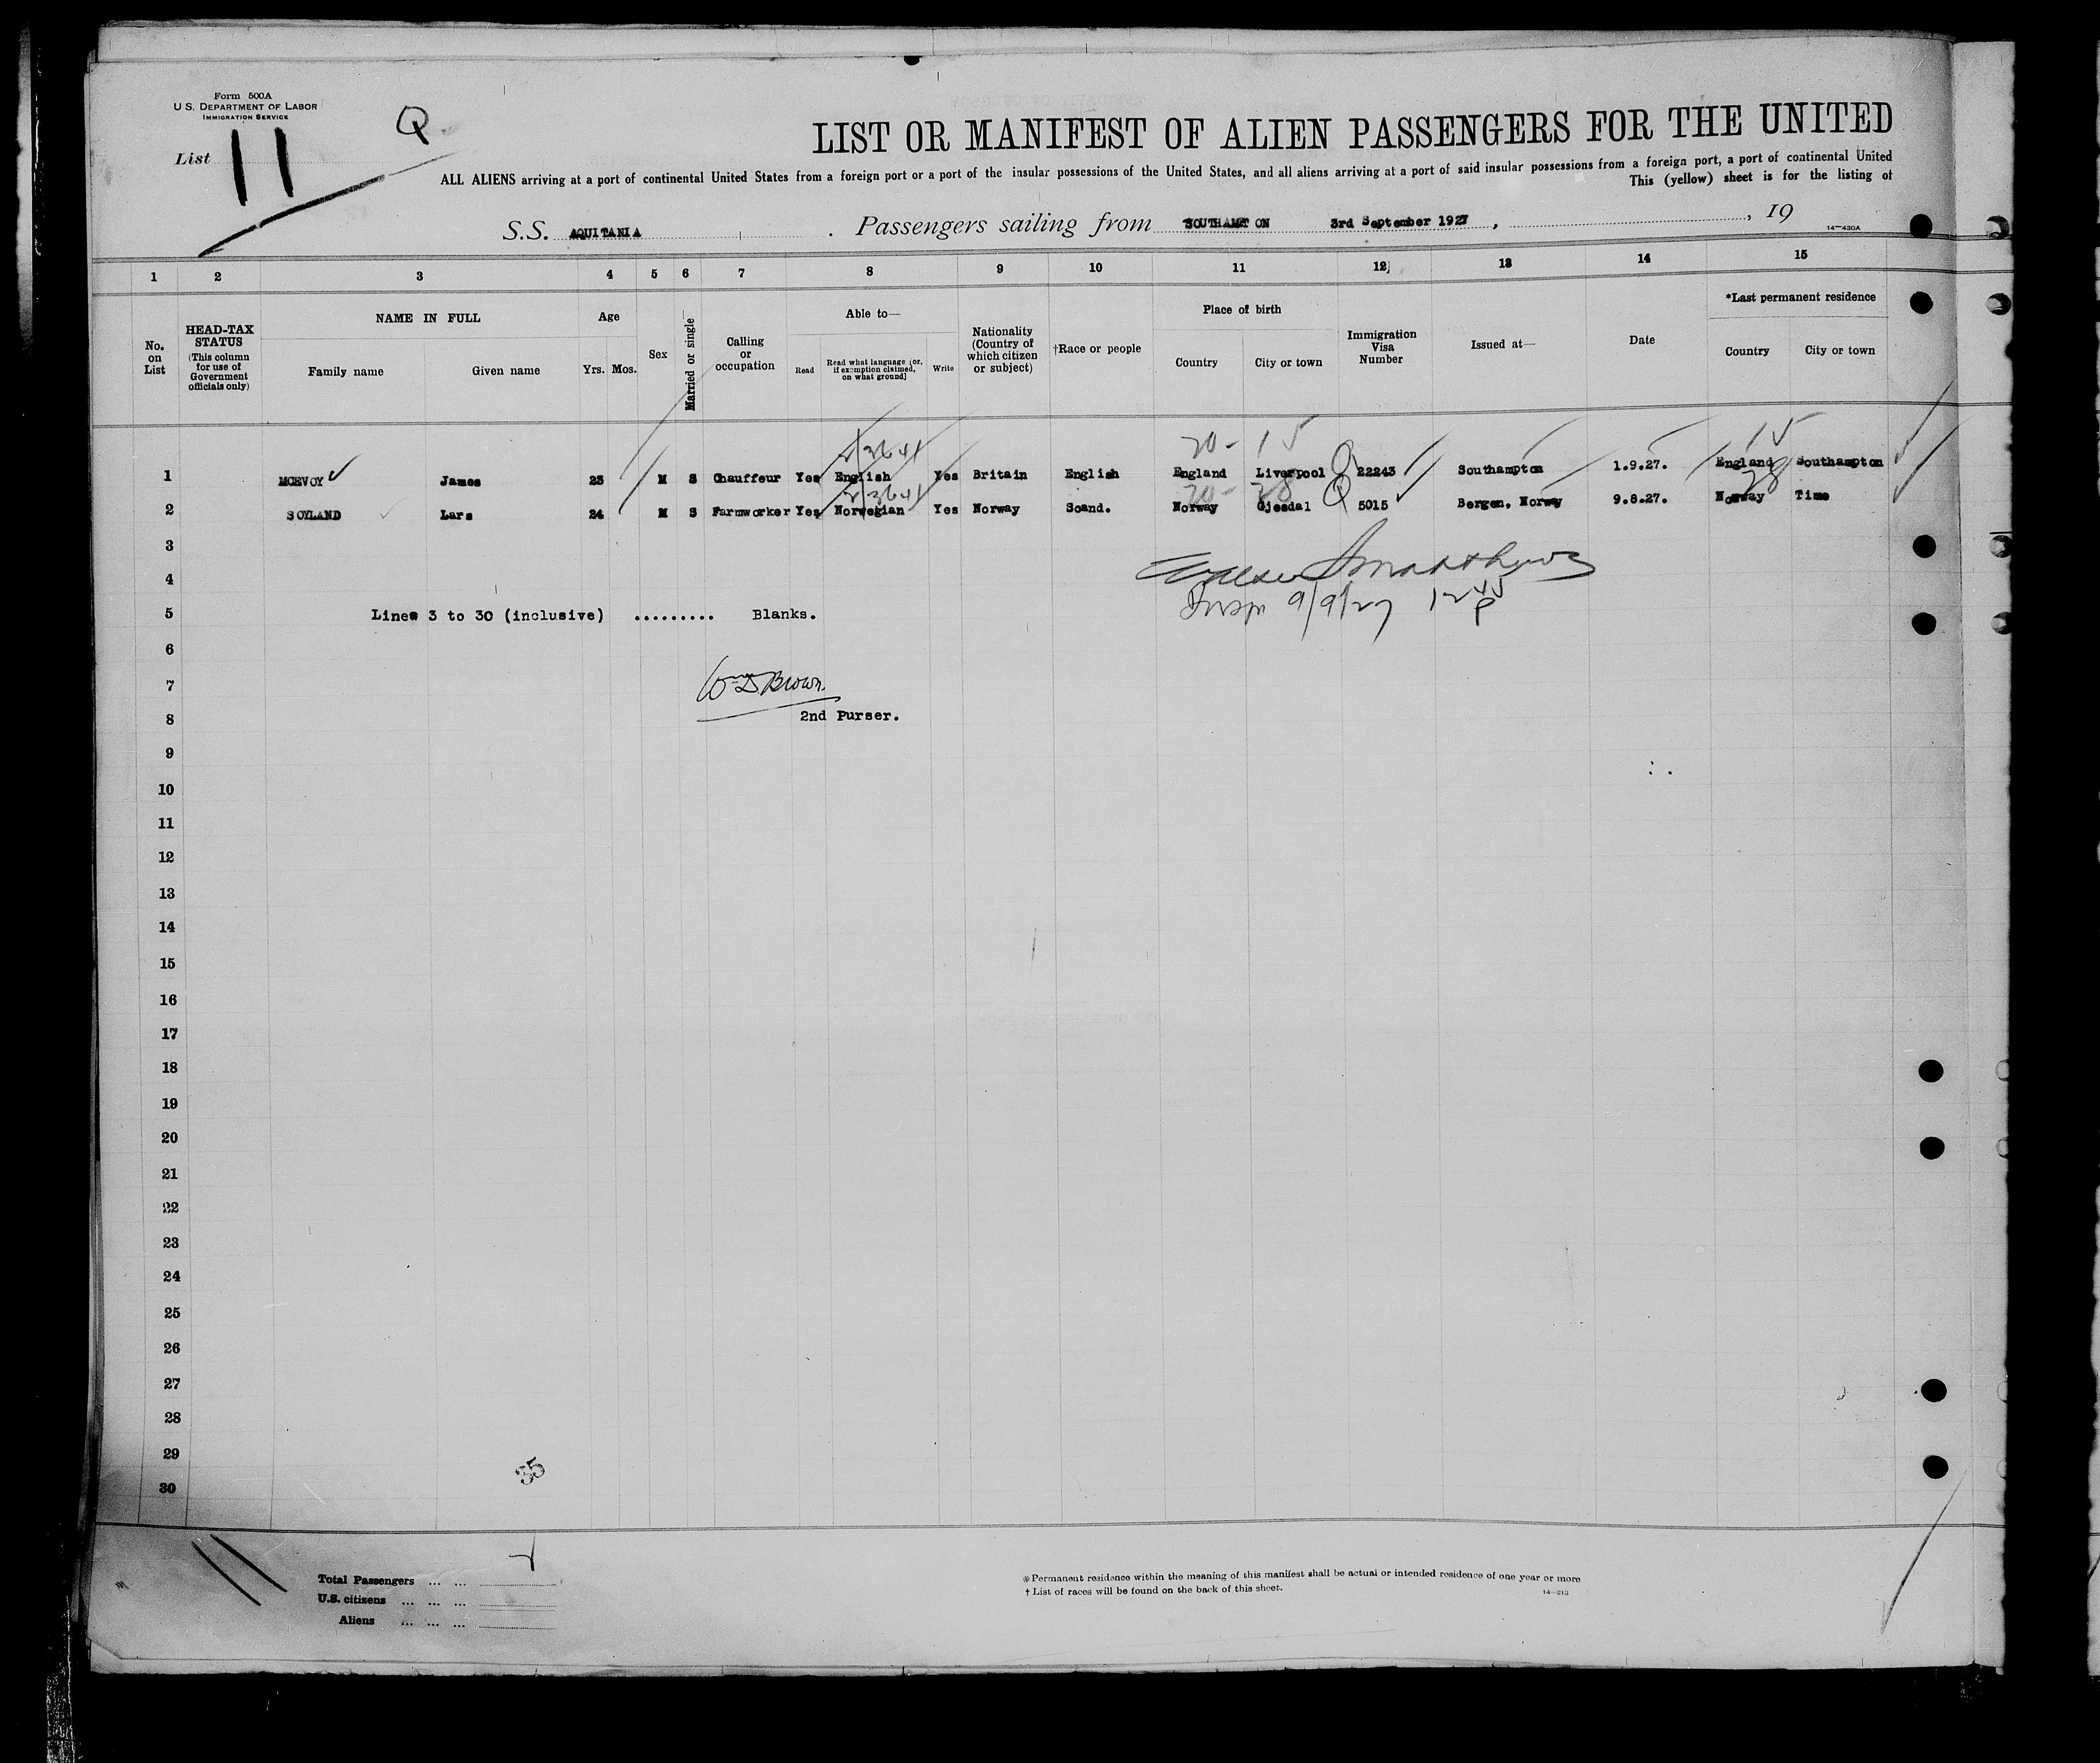 Form 500A
U. S. DEPARTMENT OF LABOR
IMMIGRATION SERVICE
Q
List 11
LIST OR MANIFEST OF ALIEN PASSENGERS FOR THE UNITED
ALL ALIENS arriving at a port of continental United States from a foreign port or a port of the insular possessions of the United States, and all aliens arriving at a port of said insular possessions from a foreign port, a port of continental United
This (yellow) sheet is for the listing of
S.S. AQUITANIA . Passengers sailing from SOUTHAMTON 3rd September 1927 , , 19
14—430A
1 2 3 4 5 6 7 8 9 10 11 12 13 14 15
No. on List
HEAD-TAX STATUS (This column for use of Government officials only)
NAME IN FULL
Family name Given name
Age
Yrs. Mos.
Sex
Married or single
Calling or occupation
Able to—
Read
Read what language (or, if exemption claimed, on what ground)
Write
Nationality (Country of which citizen or subject)
†Race or people
Place of birth
Country City or town
Immigration Visa Number
Issued at—
Date
*Last permanent residence
Country City or town
20- 15 15
1 MCEVOY James 23 M S Chauffeur Yes English Yes Britain English England Liverpool Q 22243 Southampton 1.9.27. England Southampton
20- 28 28
2 SOYLAND Lars 24 M S Farmworker Yes Norwegian Yes Norway Scand. Norway Gjesdal Q 5015 Bergen, Norway 9.8.27. Norway Time
3
4
Insp 9/9/27 12 45 P
5 Lines 3 to 30 (inclusive) ......... Blanks.
6
7 Wm D Brown.
8 2nd Purser.
9
10
11
12
13
14
15
16
17
18
19
20
21
22
23
24
25
26
27
28
29
35
30
Total Passengers ... ...
U.S. citizens ... ... ...
Aliens ... ... ...
*Permanent residence within the meaning of this manifest shall be actual or intended residence of one year or more
† List of races will be found on the back of this sheet.
14—213